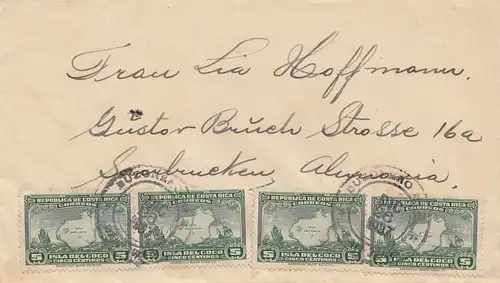 Frau Lia Hoffmann.
Gustov Brüch Strosse 16a
Sarbrucken, Alemania.
REPUBLICA DE COSTA RICA
CORREOS
5 ISLA DEL COCO 5
CINCO CENTIMOS
REPUBLICA DE COSTA RICA
CORREOS
5 ISLA DEL COCO 5
CINCO CENTIMOS
REPUBLICA DE COSTA RICA
CORREOS
5 ISLA DEL COCO 5
CINCO CENTIMOS
REPUBLICA DE COSTA RICA
CORREOS
5 ISLA DEL COCO 5
CINCO CENTIMOS